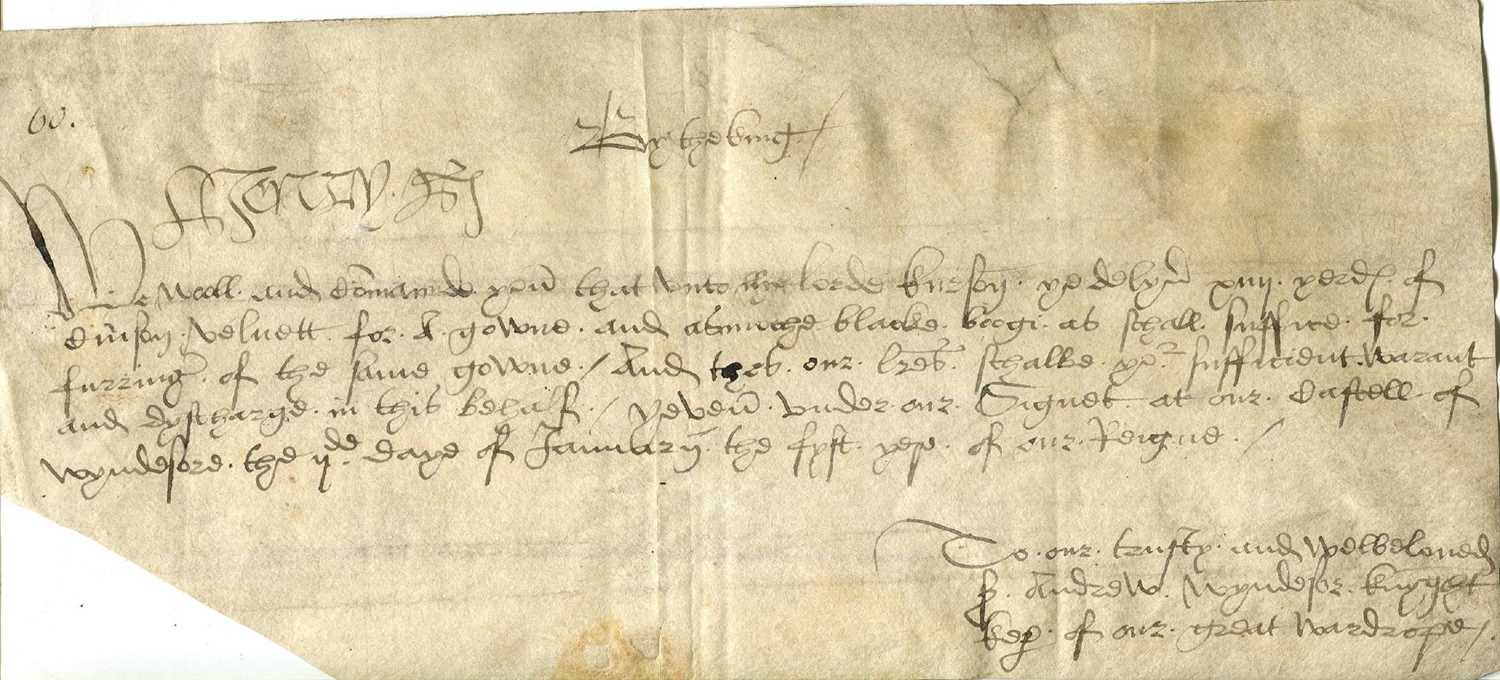 60.
By the king /
Henry R
We woll and cōmaunde youe that unto the lorde Kurson ye delyv̄ xiiij yerdꝭ of
crīmson velvett for A gowne and asmuche blacke boogi as schall suffice for
furring of the same gowne / And thes our lrēs schalbe yor sufficient warant
and dyscharge in this behalf / yeven under our Signet at our Castell of
wyndesore the ijde daye of January the fyft yere of our Reigne /
To our trusty and welbeloved
Sr Andrew wyndesor knyght
kep̄ of our great wardrope /